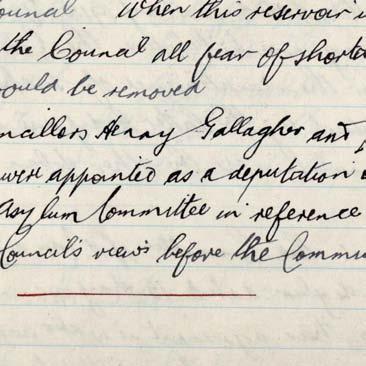 ouncil When this reservoir i
the Council all fear of shorta
would be removed
ncillors Henry Gallagher and
were appointed as a deputation
Asylum Committee in reference
Council's views before the Commi